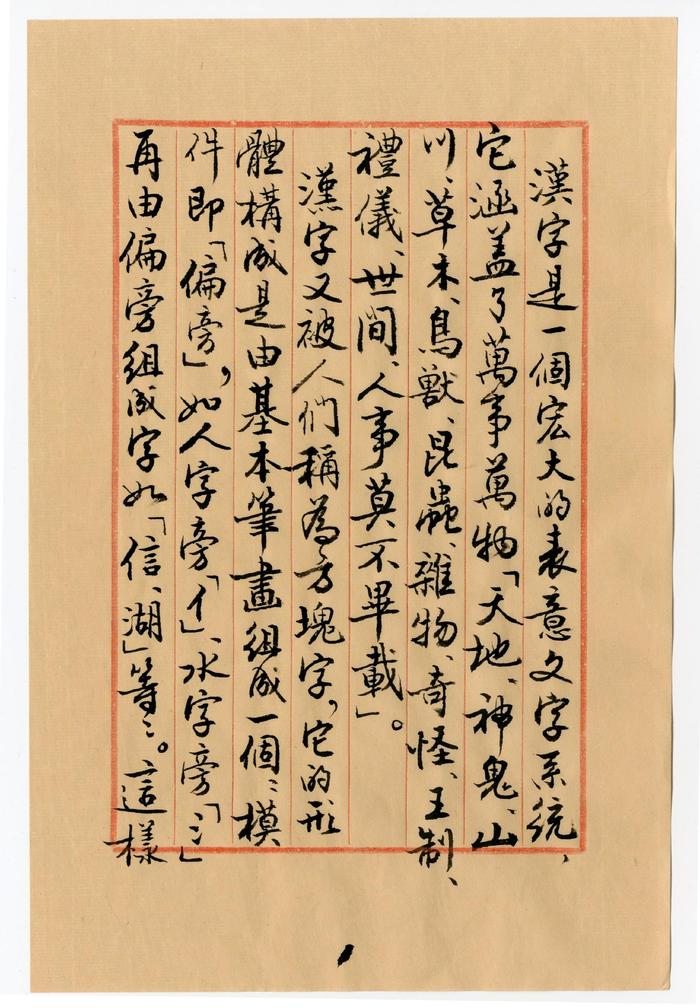 漢字是一個宏大的表意文字系統、
它涵盖了萬事萬物「天地、神鬼、山
川、草木、鳥獸、昆蟲、雜物、奇怪、王制、
禮儀、世間、人事莫不畢載」。
漢字又被人們稱為方塊字，它的形
體構成是由基本筆畫組成一個〻模
件即「偏旁」，如人字旁「亻」、水字旁「氵」
再由偏旁組成字如「信、湖」等〻。這樣